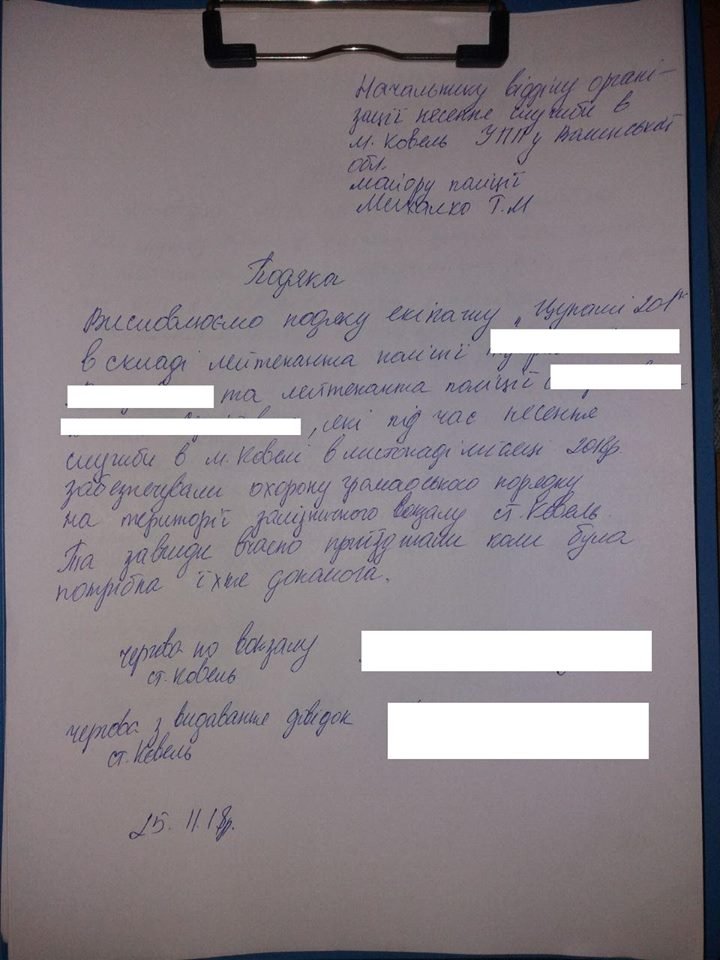 Начальнику відділу органі-
зації несення служби в
м. Ковель УПП у Волинській
обл.
майору поліції
Михалко Т.М
Подяка
Висловлюємо подяку екіпажу „Цунамі 201"
в складі лейтенанта поліції
та лейтенанта поліції
, які під час несення
служби в м. Ковелі в листопаді місяці 2018р.
забезпечували охорону громадського порядку
на території залізничного вокзалу ст. Ковель.
Та завжди вчасно приїзджали коли була
потрібна їхня допомога.
чергова по вокзалу
ст. Ковель
чергова з видавання довідок
ст. Ковель
25.11.18р.